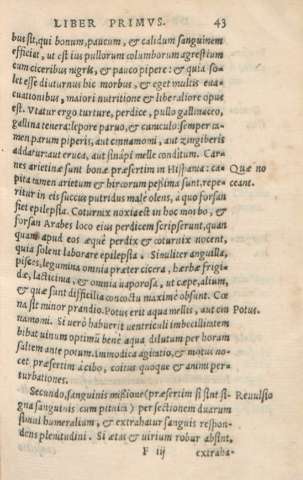 LIBER PRIMVS. 43
bus sit, qui bonum, paucum, & calidum sanguinem
efficiat, ut est ius pullorum columborum agrestium
cum ciceribus nigris, & pauco pipere: & quia so-
let esse diuturnus hic morbus, & eget multis eua-
cuationibus, maiori nutritione & liberaliore opus
est. Vtatur ergo turture, perdice, pullo gallinaceo,
gallina tenera: lepore paruo, & cuniculo: semper ta-
men parum piperis, aut cinnamomi, aut zingiberis
addatur: aut eruca, aut sinapi melle conditum. Car-
nes arietinæ sunt bonæ præsertim in Hispania: ca- Quæ no
pita tamen arietum & hircorum pessima sunt, repe- ceant.
ritur in eis succus putridus male olens, a quo forsan
fiet epilepsia. Coturnix noxia est in hoc morbo, &
forsan Arabes loco eius perdicem scripserunt, quan
quam apud eos æque perdix & coturnix nocent,
quia solent laborare epilepsia. Similiter anguilla,
pisces, legumina omnia præter cicera, herbæ frigi-
dæ, lacticinia, & omnia uaporosa, ut cæpe, alium,
& quæ sunt difficilia concoctu maxime obsunt. Cœ
na sit minor prandio. Potus erit aqua mellis, aut cin Potus.
namomi. Si uerò habuerit uentriculi imbecillitatem
bibat uinum optimū bene aqua dilutum per horam
saltem ante potum. Immodica agitatio, & motus no-
cet præsertim a cibo, coitus quoque & animi per-
turbationes.
Secundo, sanguinis missione (præsertim si sint si- Reuulsio
gna sanguinis cum pituita) per sectionem duarum
simul humeralium, & extrahatur sanguis respon-
dens plenitudini. Si ætas & uirium robur absint,
F iij extraha-